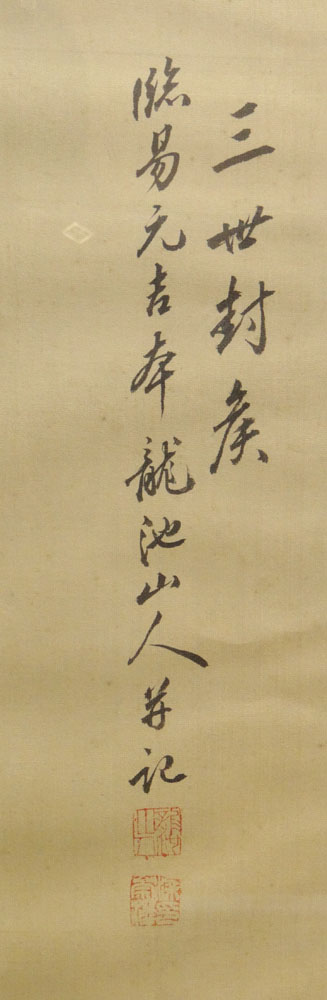 三世封矦
臨易元吉本龍池山人并記